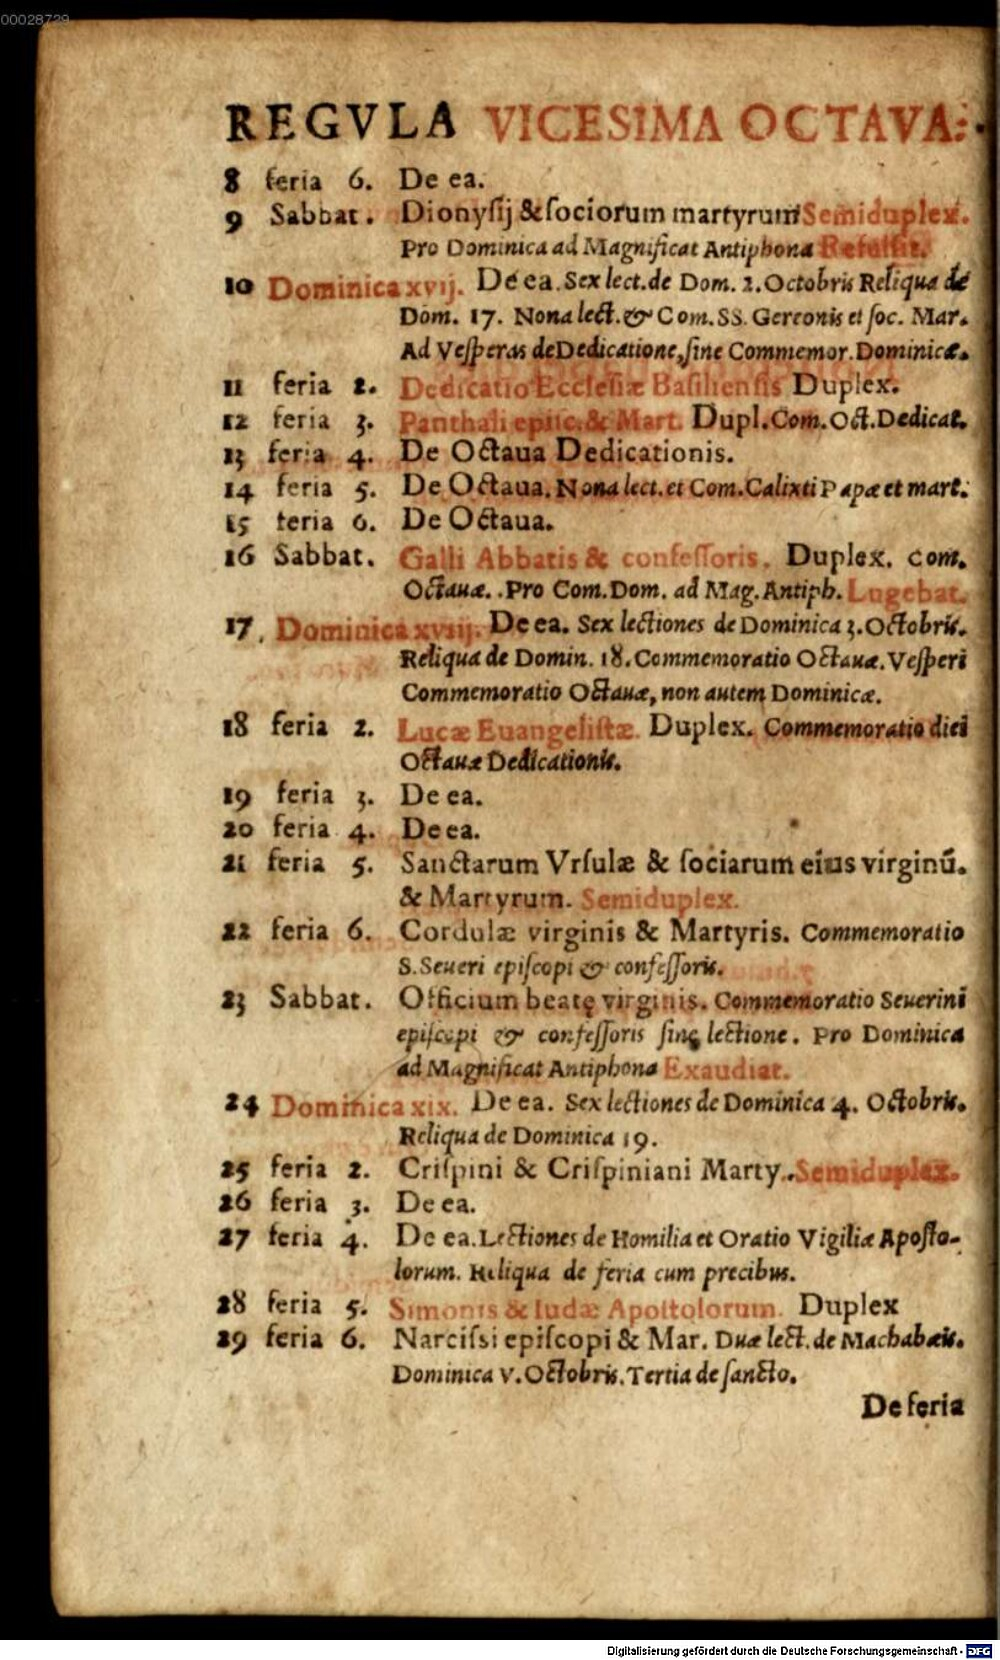 00028729
REGVLA VICESIMA OCTAVA.
8 feria 6. De ea.
9 Sabbat. Dionysij & sociorum martyrum Semiduplex.
Pro Dominica ad Magnificat Antiphona Refulsit.
10 Dominica xvij. De ea. Sex lect. de Dom. 2. Octobris Reliqua de
Dom. 17. Nona lect. & Com. SS. Gereonis et soc. Mar.
Ad Vesperas de Dedicatione, sine Commemor. Dominicæ.
11 feria 2. Dedicatio Ecclesiæ Basiliensis Duplex.
12 feria 3. Panthali episc. & Mart. Dupl. Com. Oct. Dedicat.
13 feria 4. De Octaua Dedicationis.
14 feria 5. De Octaua. Nona lect. et Com. Calixti Papæ et mart.
15 feria 6. De Octaua.
16 Sabbat. Galli Abbatis & confessoris. Duplex. Com.
Octauæ. Pro Com. Dom. ad Mag. Antiph. Lugebat.
17. Dominica xviij. De ea. Sex lectiones de Dominica 3. Octobris.
Reliqua de Domin. 18. Commemoratio Octauæ. Vesperi
Commemoratio Octauæ, non autem Dominicæ.
18 feria 2. Lucæ Euangelistæ. Duplex. Commemoratio diei
Octauæ Dedicationis.
19 feria 3. De ea.
20 feria 4. De ea.
21 feria 5. Sanctarum Vrsulæ & sociarum eius virginū.
& Martyrum. Semiduplex.
22 feria 6. Cordulæ virginis & Martyris. Commemoratio
S. Seueri episcopi & confessoris.
23 Sabbat. Officium beatę virginis. Commemoratio Seuerini
episcopi & confessoris sine lectione. Pro Dominica
ad Magnificat Antiphona Exaudiat.
24 Dominica xix. De ea. Sex lectiones de Dominica 4. Octobris.
Reliqua de Dominica 19.
25 feria 2. Crispini & Crispiniani Marty. Semiduplex.
26 feria 3. De ea.
27 feria 4. De ea. Lectiones de Homilia et Oratio Vigiliæ Aposto-
lorum. Reliqua de feria cum precibus.
28 feria 5. Simonis & Iudæ Apostolorum. Duplex
29 feria 6. Narcissi episcopi & Mar. Duæ lect. de Machabæis.
Dominica V. Octobris. Tertia de sancto.
De feria
Digitalisierung gefördert durch die Deutsche Forschungsgemeinschaft - DFG